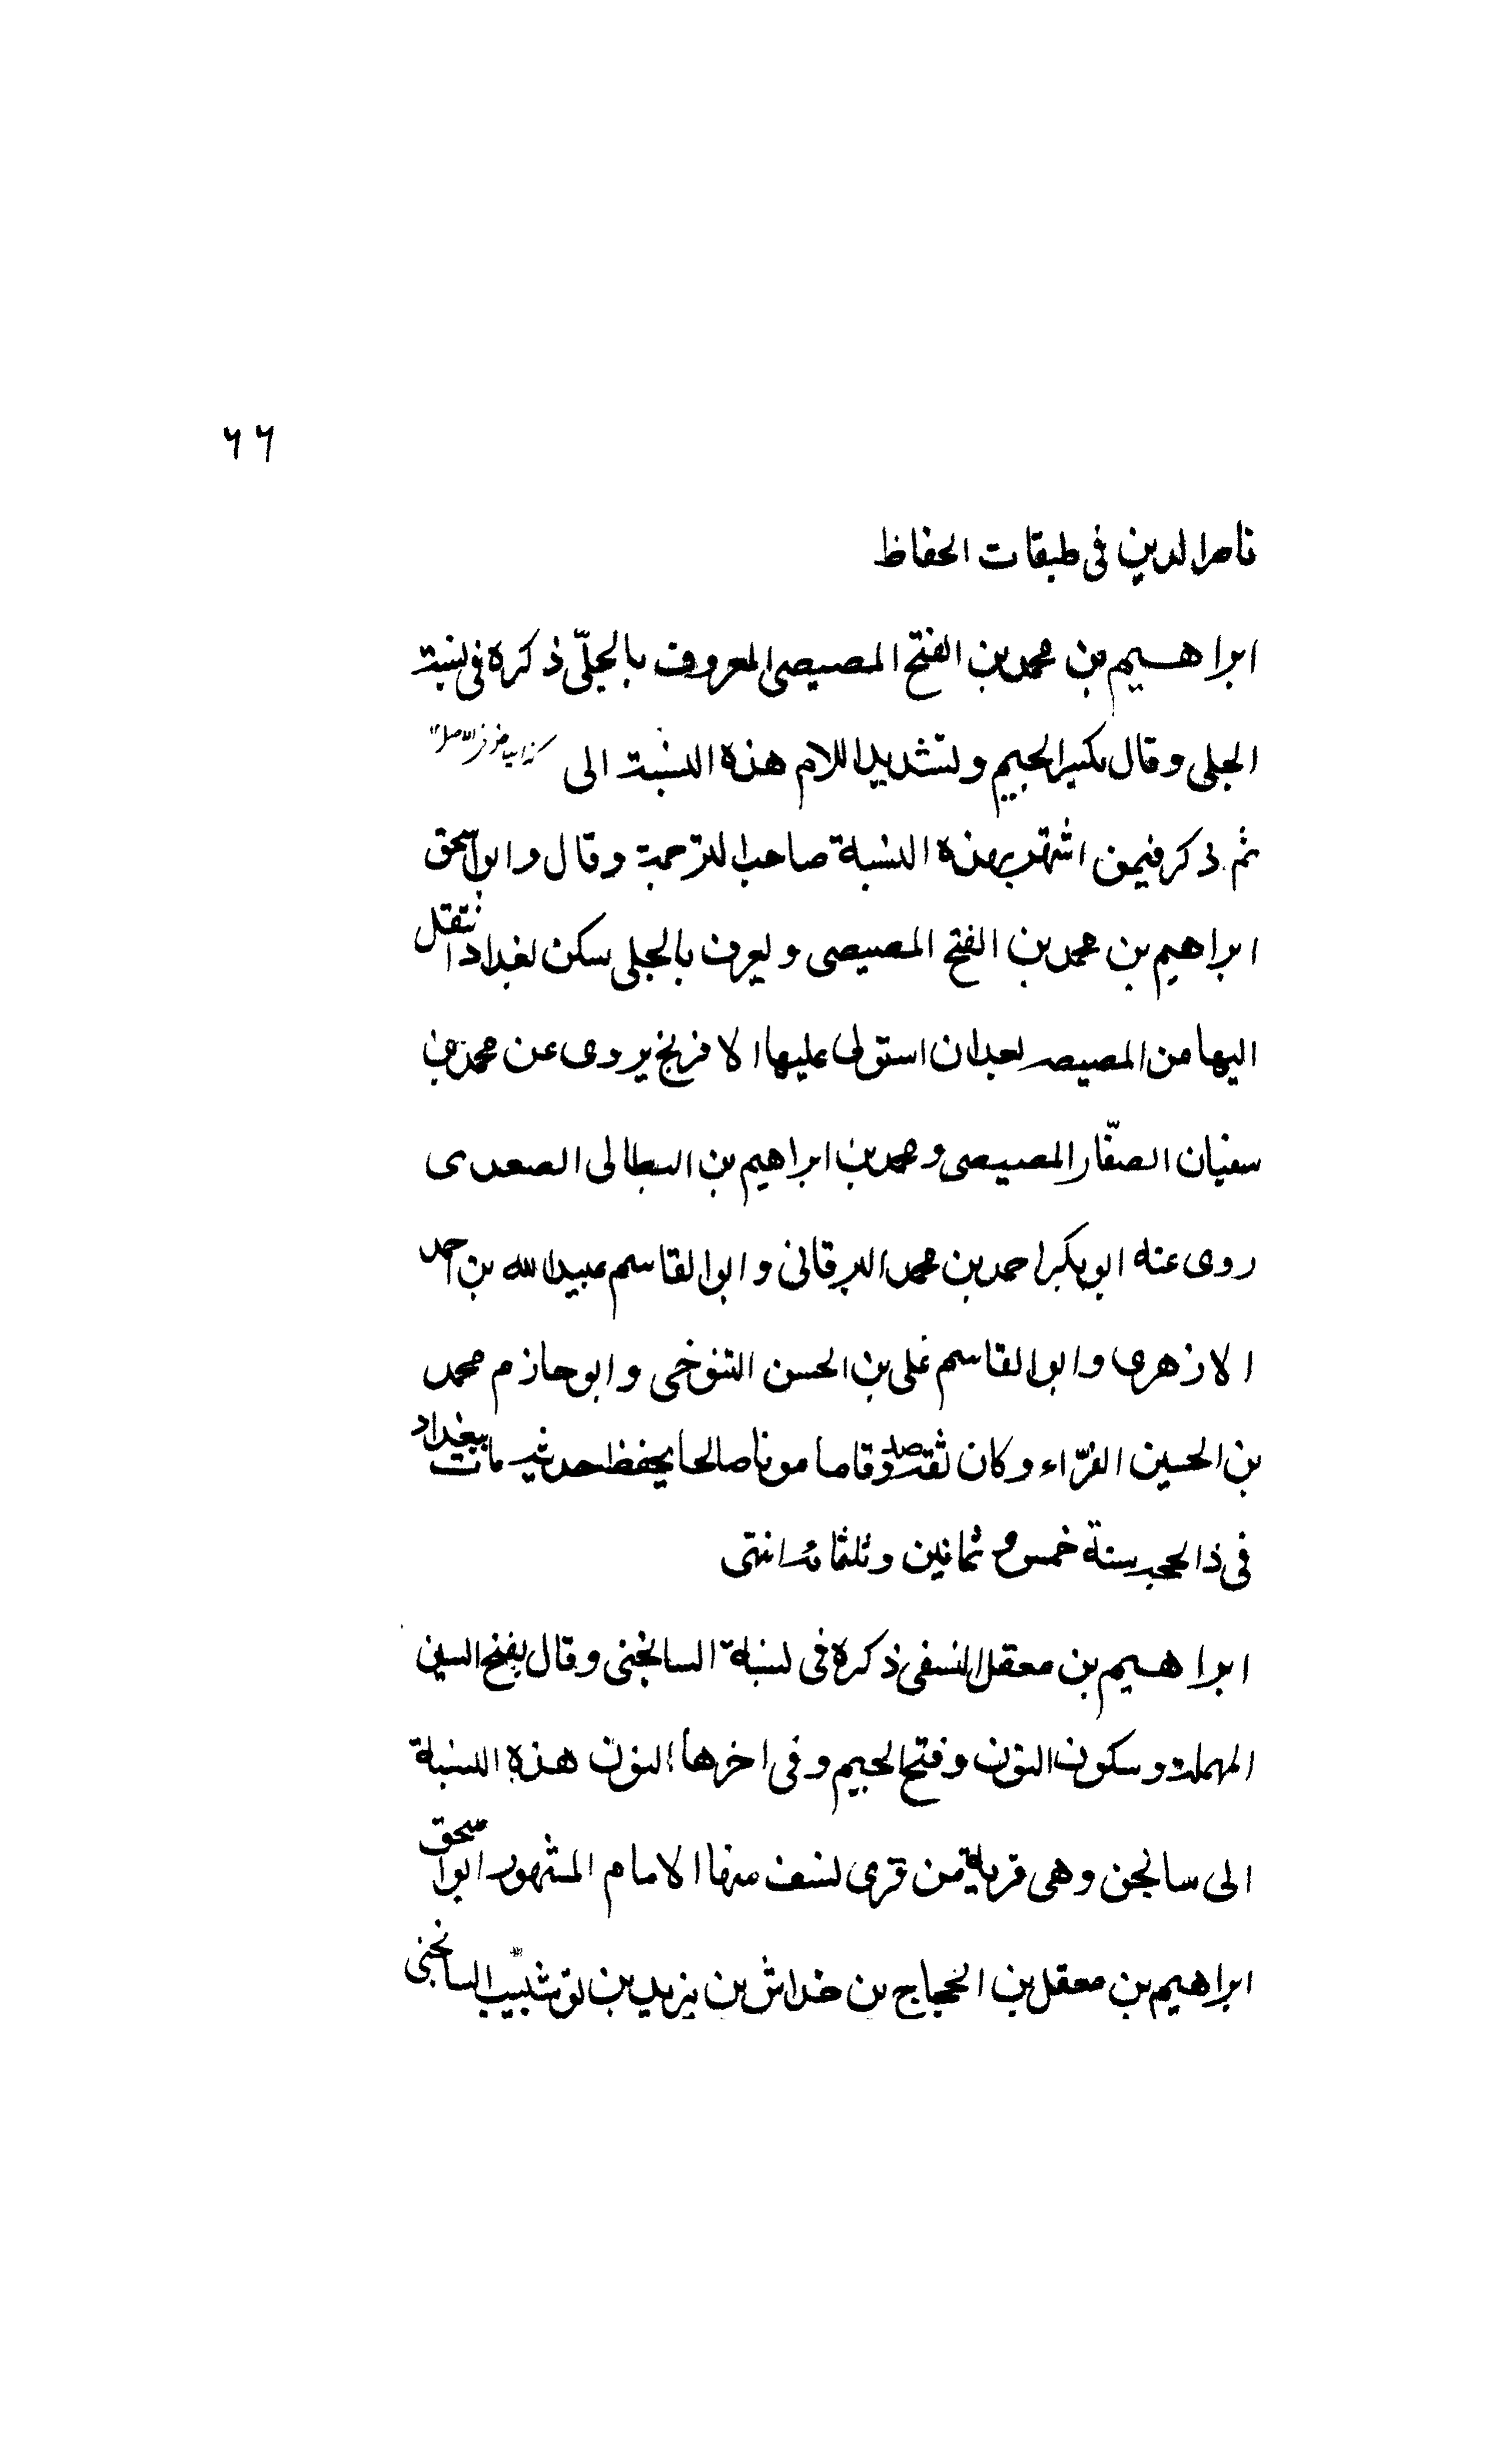 ٦٦
ناصر الدين فى طبقات الحفاظ
ابراهيم بن محمد بن الفتح المصيصى المعروف بالجلّى ذكره فى نسبة
الجلى وقال بكسر الجيم وتشديد اللام هذه النسبة الى
ثم ذكر فيمن اشتهر بهذه النسبة صاحب الترجمة وقال وابو اسحق
ابراهيم بن محمد بن الفتح المصيصى ويعرف بالجلى سكن بغداد انتقل
اليها من المصيصه بعد ان استولى عليها الافرنج يروى عن محمد بن
سفيان الصفّار المصيصى ومحمد بن ابراهيم بن البطالى الصعدى
روى عنه ابو بكر احمد بن محمد البرقانى وابو القاسم عبيد الله بن احمد
الازهرى وابو القاسم على بن الحسن التنوخى وابو حازم محمد
بن الحسين الفرّاء وكان ثقة صدوقا مامونا صالحا يحفظ حديثه مات ببغداد
فى ذا الحجه سنة خمس وثمانين وثلثمائه انتهى
ابراهيم بن معقل النسفى ذكره فى نسبة السانجنى وقال بفتح السين
المهملة وسكون النون وفتح الجيم وفى اخرها النون هذه النسبة
الى سانجن وهى قرية من قرى نسف منها الامام المشهور ابو اسحق
ابراهيم بن معقل بن الحجاج بن خداش بن يزيد بن نوشيب السانجنى